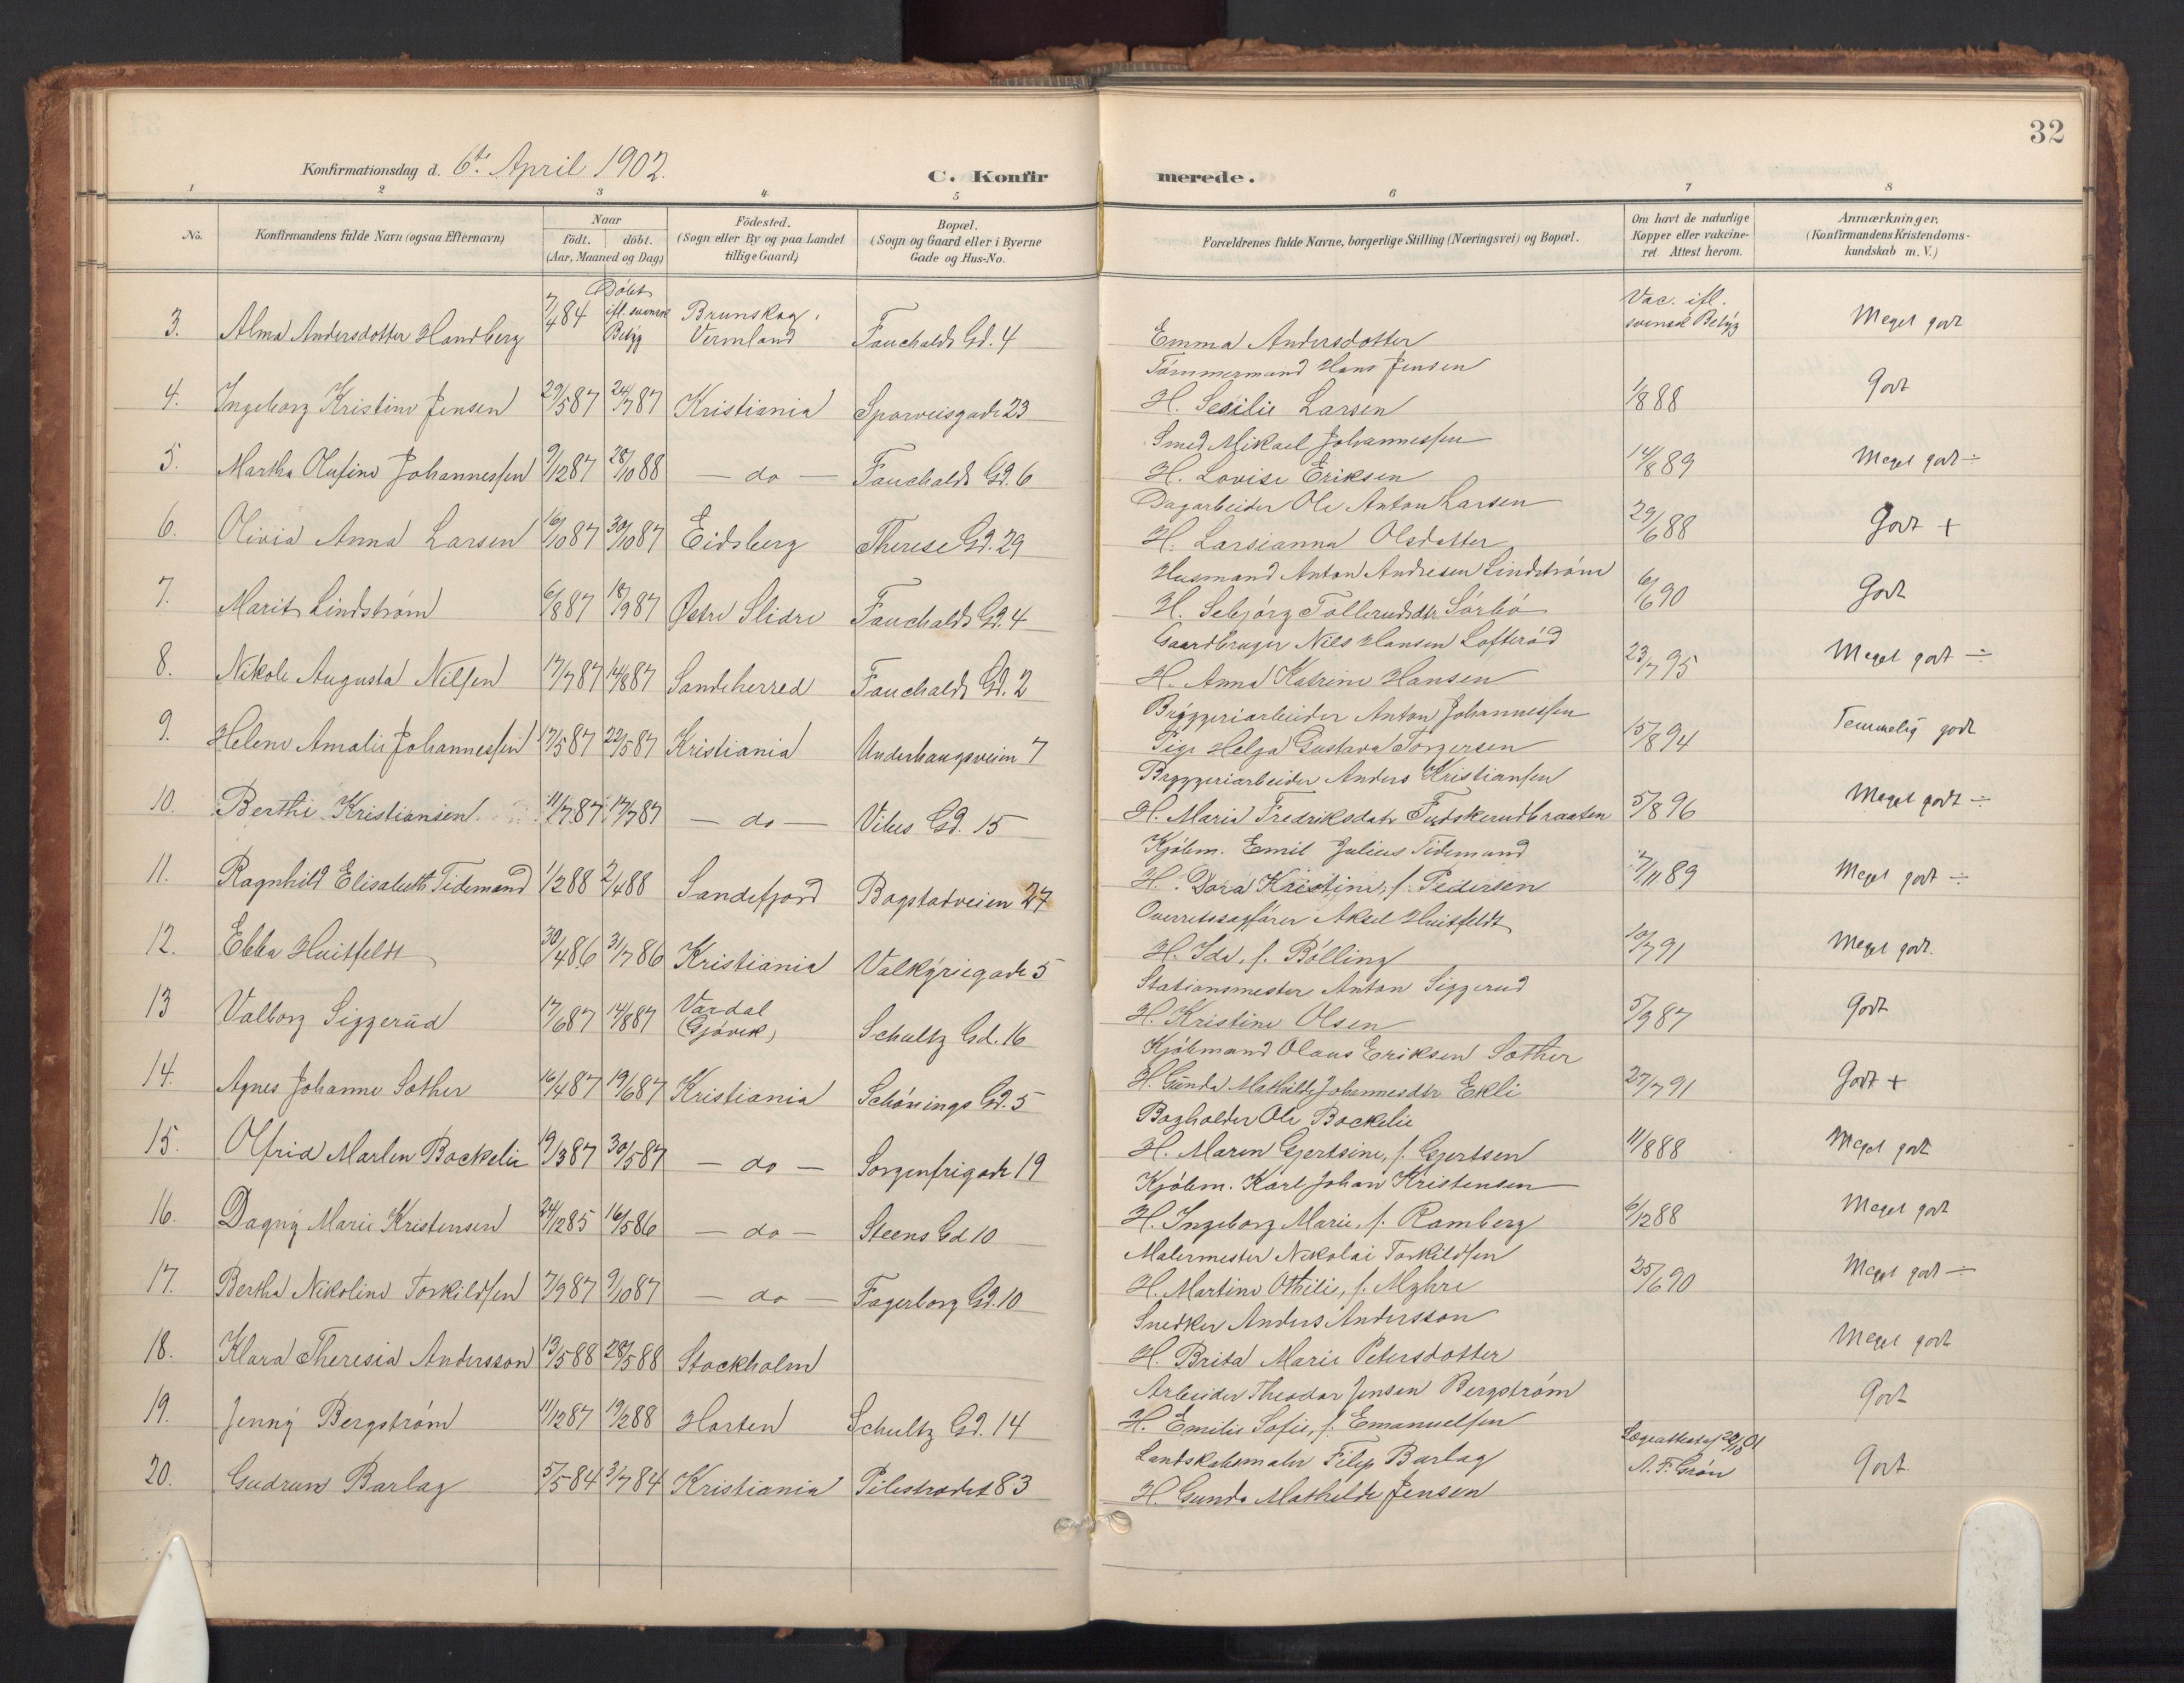 32
Konfirmationsdag d. 6te April 1902.
C. Konfir merede.
1 2 3 4 5 6 7 8
No. Konfirmandens fulde Navn (ogsaa Efternavn) Naar födt. döbt. (Aar, Maaned og Dag) Födested. (Sogn eller By og paa Landet tillige Gaard) Bopæl. (Sogn og Gaard eller i Byerne Gade og Hus-No. Forældrenes fulde Navne, borgerlige Stilling (Næringsvei) og Bopæl. Om havt de naturlige Kopper eller vakcineret. Attest herom. Anmærkninger. (Konfirmandens Kristendomskundskab m. V.)
3. Alma Andersdotter Handberg 7/4 84 Döbt ifl. svensk Betyg Brunskog, Vermland Fauchalds Gd. 4 Emma Andersdotter Vac. ifl. svensk Betyg Meget godt
Tömmermand Hans Jensen
4. Ingeborg Kristine Jensen 29/5 87 24/7 87 Kristiania Sporveisgade 23 H. Sesilie Larsen 1/8 88 Godt
Smed Mikael Johannessen
5. Martha Olufine Johannessen 9/12 87 28/10 88 — do — Fauchalds Gd. 6 H. Lovise Eriksen 14/8 89 Meget godt ÷
Dagarbeider Ole Anton Larsen
6. Olivia Anna Larsen 16/10 87 30/10 87 Eidsberg Therese Gd. 29 H. Larsianna Olsdatter 29/6 88 Godt +
Husmand Anton Andresen Lindström
7. Marit Lindström 6/8 87 18/9 87 Østre Slidre Fauchalds Gd. 4 H. Sebjörg Tollerudsdtr. Sörbö 6/6 90 Godt
Gaardbruger Nils Hansen Lofteröd
8. Nikole Augusta Nilsen 17/7 87 14/8 87 Sandeherred Fauchalds Gd. 2 H. Anna Katrine Hansen 23/7 95 Meget godt ÷
Bryggeriarbeider Anton Johannessen
9. Helene Amalie Johannessen 17/5 87 22/5 87 Kristiania Underhaugsveien 7 Pige Helga Gustava Torgersen 15/8 94 Temmelig godt
Bryggeriarbeider Anders Kristiansen
10. Berthe Kristiansen 11/7 87 17/7 87 — do — Vibes Gd. 15 H. Maria Fredriksdatr. Fudskerudbraaten 5/8 96 Meget godt ÷
Kjöbm. Emil Julius Tidemand
11. Ragnhild Elisabeth Tidemand 1/2 88 2/4 88 Sandefjord Bogstadveien 27 H. Dora Kristine, f. Pedersen 7/11 89 Meget godt ÷
Overretssagförer Aksel Huitfeldt
12. Ebba Huitfeldt 30/4 86 31/7 86 Kristiania Valkyriegade 5 H. Ida, f. Bölling 10/7 91 Meget godt.
Stationsmester Anton Siggerud
13 Valborg Siggerud 17/6 87 14/8 87 Vardal (Gjövik) Schultz Gd. 16 H. Kristine Olsen 5/9 87 Godt
Kjöbmand Olaus Eriksen Sother
14. Agnes Johanne Sother 16/4 87 19/6 87 Kristiania Schönings Gd. 5 H. Gunda Mathilde Johannesdtr Ekli 27/7 91 Godt +
Bogholder Ole Bockelie
15. Olfrid Marlen Bockelie 19/3 87 30/5 87 — do — Sorgenfrigade 19 H. Maren Gjertsine, f. Gjertsen 11/8 88 Meget godt
Kjöbm. Karl Johan Kristensen
16. Dagny Marie Kristensen 24/12 85 16/5 86 — do — Steens Gd 10 H. Ingeborg Marie, f. Ramberg 6/12 88 Meget godt
Malermester Nikolai Torkildsen
17. Bertha Nikoline Torkildsen 7/9 87 9/10 87 — do — Fagerborg Gd. 10 H. Martine Othilie, f. Myhre 25/6 90 Meget godt ÷
Snedker Anders Andersson
18. Klara Theresia Andersson 13/5 88 28/5 88 Stockholm H. Brita Marie Petersdotter Meget godt
Arbeider Theodor Jensen Bergström
19. Jenny Bergström 11/12 87 19/2 88 Horten Schultz Gd. 14 H. Emilie Sofie, f. Emanuelsen Godt
Landskabsmaler Filip Barlag
20. Gudrun Barlag 5/5 84 3/7 84 Kristiania Pilestrædet 83 H. Gunda Mathilde Jensen Lægeattest af 22/10 01 A. F. Grön Godt